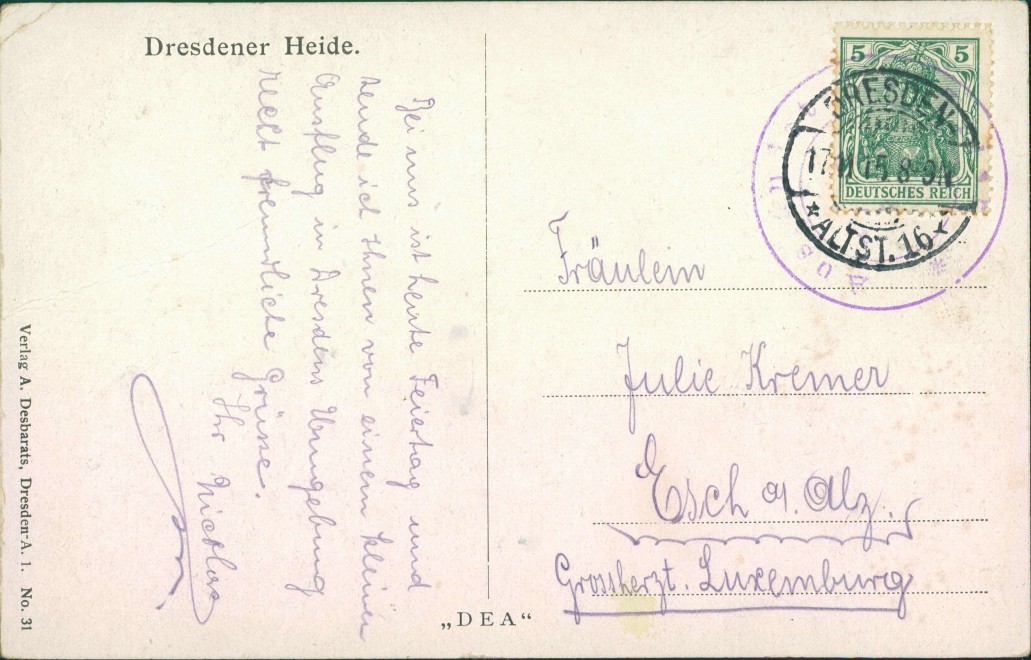 Dresdener Heide.
Bei uns ist heute Feiertag und
sende ich Ihnen von einem kleinen
Ausflug in Dresdens Umgebung
recht freundliche Grüsse.
Ihr Nicolas
Fräulein
Julie Kremer
Esch a. Alz.
Grossherzt. Luxemburg
5 5
DEUTSCHES REICH
DRESDEN
15 8-9N
*ALTST. 16*
„DEA“
Verlag A. Desbarats, Dresden-A. 1. No. 31